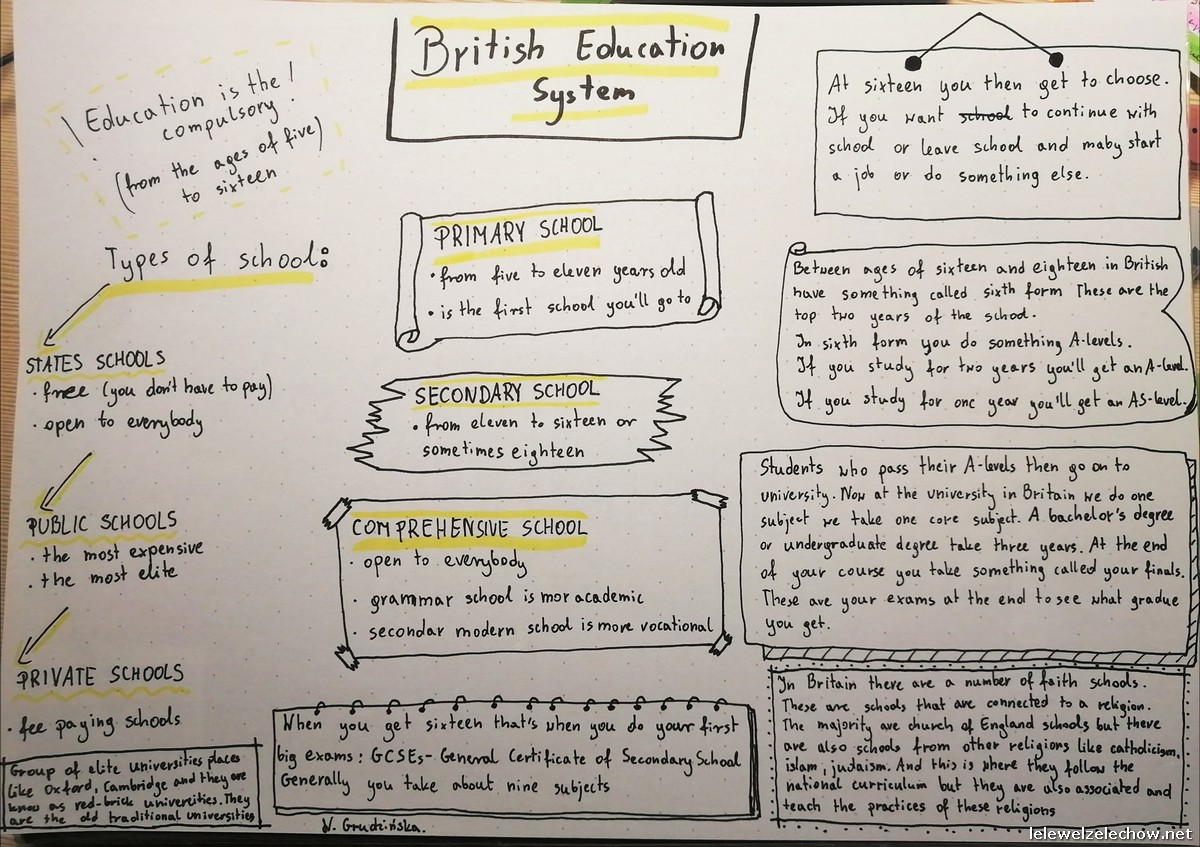 British Education
System
\ Education is the /
compulsory
(from the ages of five)
to sixteen
Types of school:
STATES SCHOOLS
· free (you don't have to pay)
· open to everybody
PUBLIC SCHOOLS
· the most expensive
· the most elite
PRIVATE SCHOOLS
· fee paying schools
Group of elite universities places
like Oxford, Cambridge and they are
know as red-brick univercities. They
are the old traditional universities
PRIMARY SCHOOL
· from five to eleven years old
· is the first school you'll go to
SECONDARY SCHOOL
· from eleven to sixteen or
sometimes eighteen
COMPREHENSIVE SCHOOL
· open to everybody
· grammar school is mor academic
· secondar modern school is more vocational
When you get sixteen that's when you do your first
big exams: GCSEs- General Certificate of Secondary School
Generally you take about nine subjects
N. Grudzińska.
At sixteen you then get to choose.
If you want school to continue with
school or leave school and maby start
a job or do something else.
Between ages of sixteen and eighteen in British
have something called sixth form These are the
top two years of the school.
In sixth form you do something A-levels.
If you study for two years you'll get an A-level.
If you study for one year you'll get an AS-level.
Students who pass their A-levels then go on to
university. Now at the university in Britain we do one
subject we take one core subject. A bachelor's degree
or undergraduate degree take three years. At the end
of your course you take something called your finals.
These are your exams at the end to see what gradue
you get.
In Britain there are a number of faith schools.
These are schools that are connected to a religion.
The majority are church of England schools but there
are also schools from other religions like catholicism,
islam, judaism. And this is where they follow the
national curriculum but they are also associated and
teach the practices of these religions
lelewelzelechow.net